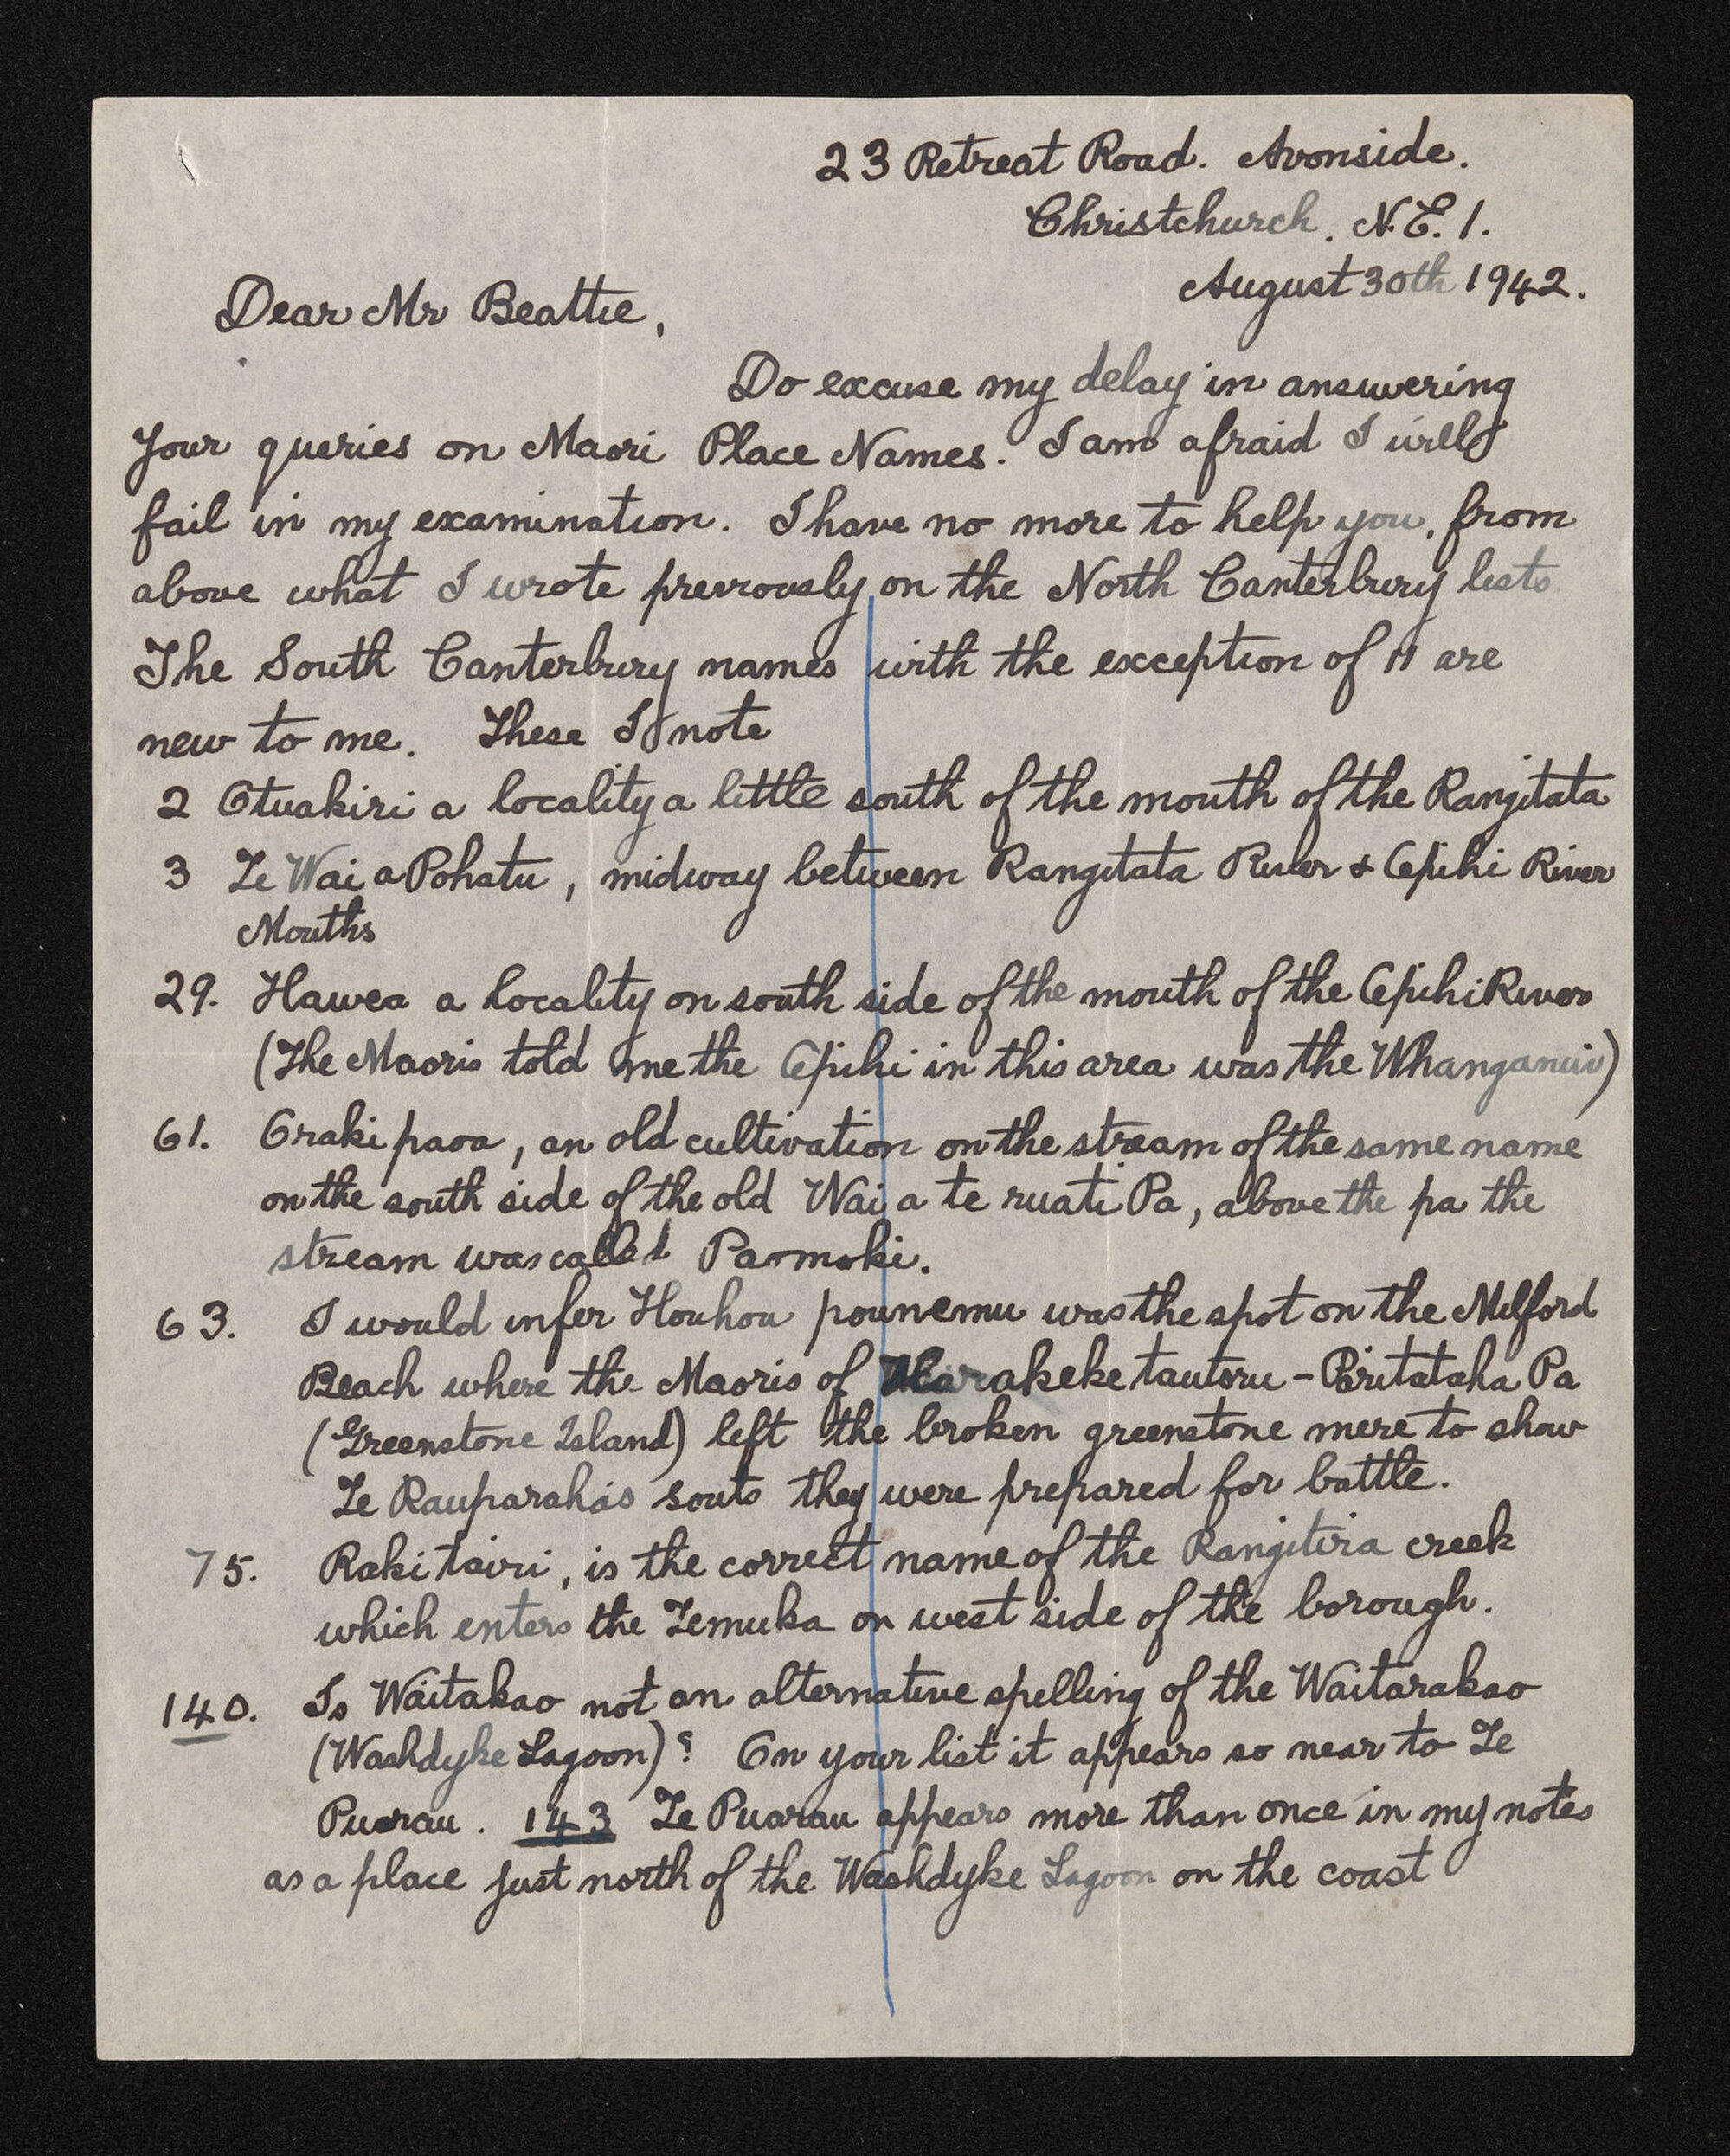 23 Retreat Road. Avonside.
Christchurch. N.E.1.
August 30th 1942.
Dear Mr Beattie,
Do excuse my delay in answering
your queries on Maori Place Names. I am afraid I will
fail in my examination. I have no more to help you, from
above what I wrote previously on the North Canterbury lists
The South Canterbury names with the exception of 11 are
new to me. These I note
2 Otuakiri a locality a little south of the mouth of the Rangitata
3 Te Wai a Pohatu, midway between Rangitata River & Opihi River
Mouths
29. Hawea a locality on south side of the mouth of the Opihi River
(The Maoris told me the Opihi in this area was the Whanganui)
61. Oraki paoa, an old cultivation on the stream of the same name
on the south side of the old Wai a te ruati Pa, above the pa the
stream was called Paomoki.
63. I would infer Houhou pounemu was the spot on the Milford
Beach where the Maoris of Harakeke tautoru - Piritataha Pa
(Greenstone Island) left the broken greenstone mere to show
Te Rauparahas souts they were prepared for battle.
75. Raki tairi, is the correct name of the Rangitira creek
which enters the Temuka on west side of the borough.
140. Is Waitakao not an alternative spelling of the Waitarakao
(Washdyke Lagoon)? On your list it appears so near to Te
Puarau. 143 Te Puarau appears more than once in my notes
as a place just north of the Washdyke Lagoon on the coast